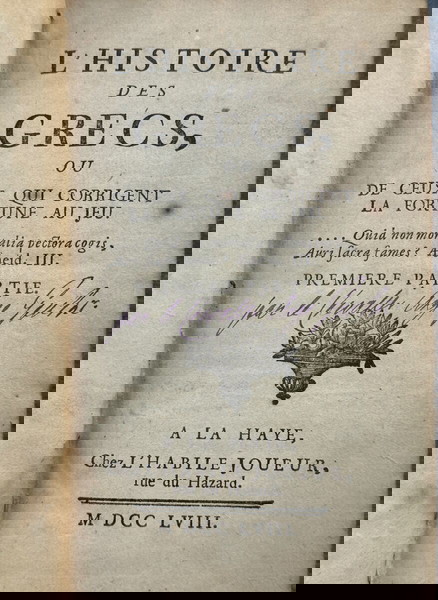 L'HISTOIRE
DES
GRECS,
OU
DE CEUX QUI CORRIGENT
LA FORTUNE AU JEU.
.... Quid non mortalia pectora cogis,
Auri sacra fames? Æneid. III.
PREMIERE PARTIE.
A LA HAYE,
Chez L'HABILE JOUEUR,
rue du Hazard.
M. DCC LVIII.